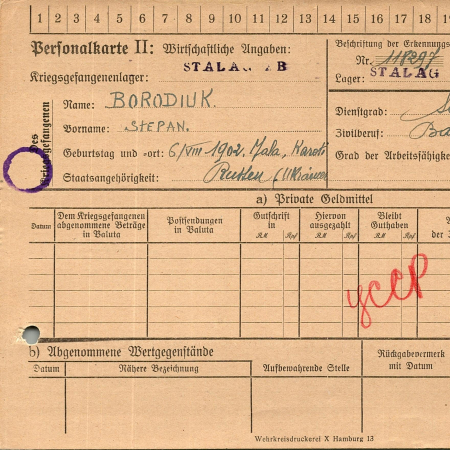 1 2 3 4 5 6 7 8 9 10 11 12 13 14 15 16 17 18 19
Personalkarte II: Wirtschaftliche Angaben:
Beschriftung der Erkennungs
Nr. 118297
Kriegsgefangenenlager: STALAG B
Lager: STALAG
Des Kriegsgefangenen
Name: BORODIUK.
Vorname: STEPAN.
Dienstgrad:
Zivilberuf: Ba
Geburtstag und -ort: 6/VIII 1902.
Grad der Arbeitsfähigke
Staatsangehörigkeit:
a) Private Geldmittel
Datum
Dem Kriegsgefangenen abgenommene Beträge in Valuta
Postsendungen in Valuta
Gutschrift in
RM Rpf
Hiervon ausgezahlt
RM Rpf
Bleibt Guthaben
RM Rpf
der
УССР
b) Abgenommene Wertgegenstände
Rückgabevermerk mit Datum
Datum
Nähere Bezeichnung
Aufbewahrende Stelle
Wehrkreisdruckerei X Hamburg 13